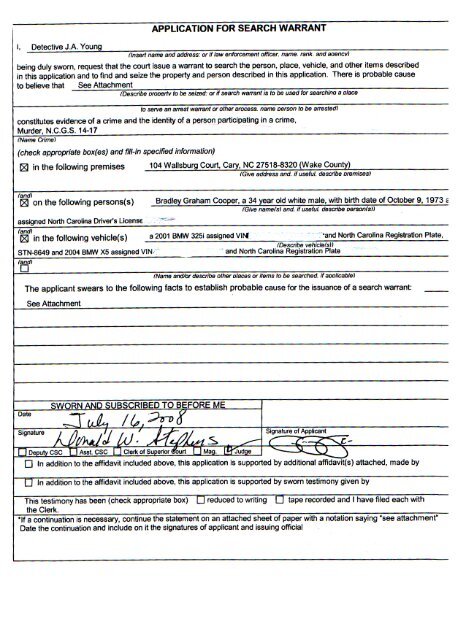 APPLICATION FOR SEARCH WARRANT
I, Detective J.A. Young
(Insert name and address; or if law enforcement officer, name, rank, and agency)
being duly sworn, request that the court issue a warrant to search the person, place, vehicle, and other items described
in this application and to find and seize the property and person described in this application. There is probable cause
to believe that See Attachment
(Describe property to be seized; or if search warrant is to be used for searching a place
to serve an arrest warrant or other process, name person to be arrested)
constitutes evidence of a crime and the identity of a person participating in a crime,
Murder, N.C.G.S. 14-17
(Name Crime)
(check appropriate box(es) and fill-in specified information)
☒ in the following premises 104 Wallsburg Court, Cary, NC 27518-8320 (Wake County)
(Give address and, if useful, describe premises)
(and)
☒ on the following person(s) Bradley Graham Cooper, a 34 year old white male, with birth date of October 9, 1973 a
(Give name(s) and, if useful, describe person(s))
assigned North Carolina Driver's License
(and)
☒ in the following vehicle(s) a 2001 BMW 325i assigned VIN and North Carolina Registration Plate,
(Describe vehicle(s))
STN-8649 and 2004 BMW X5 assigned VIN and North Carolina Registration Plate
(and)
☐
(Name and/or describe other places or items to be searched, if applicable)
The applicant swears to the following facts to establish probable cause for the issuance of a search warrant:
See Attachment
SWORN AND SUBSCRIBED TO BEFORE ME
Date
July 16, 2008
Signature
Donald W. Stephens
Signature of Applicant
☐ Deputy CSC ☐ Asst. CSC ☐ Clerk of Superior Court ☐ Mag. ☑ Judge
☐ In addition to the affidavit included above, this application is supported by additional affidavit(s) attached, made by
☐ In addition to the affidavit included above, this application is supported by sworn testimony given by
This testimony has been (check appropriate box) ☐ reduced to writing ☐ tape recorded and I have filed each with
the Clerk.
*If a continuation is necessary, continue the statement on an attached sheet of paper with a notation saying "see attachment"
Date the continuation and include on it the signatures of applicant and issuing official